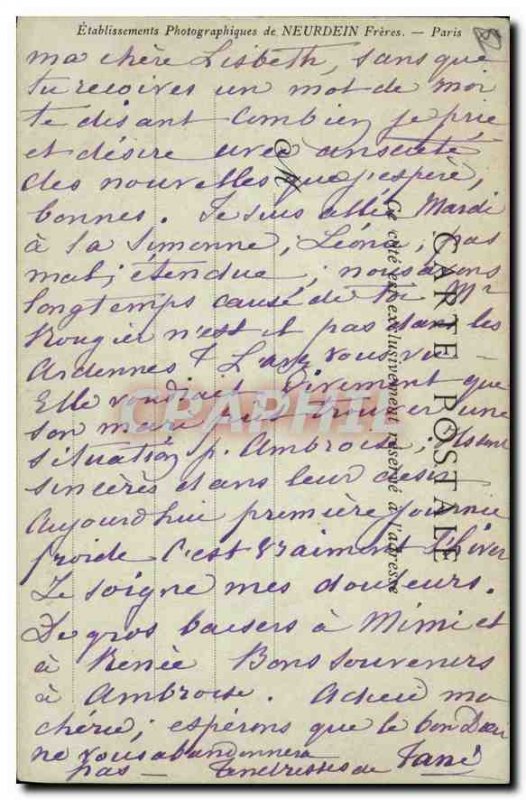 Établissements Photographiques de NEURDEIN Frères. — Paris
ma chère Lisbeth, sans que
tu reçoives un mot de moi
te disant Combien je prie
et désire avec anxiété
des nouvelles que j'espère,
bonnes. Je suis allée Mardi
à la Simonne, Léonie, pas
mal, étendue, nous avons
longtemps causé de toi Mr
Rougier n'est il pas dans les
Ardennes & L'avez vous vu —
Elle voudrait vivement que
son mari put trouver une
situation p. Ambroise, ils sont
sincères et dans leur désir
Aujourd'hui première journée
froide C'est vraiment l'hiver
Je soigne mes douleurs.
De gros baisers à Mimi et
à Renée Bons souvenirs
à Ambroise. Adieu ma
chérie, espérons que le bon Dieu
ne vous abandonnera
pas — Tendresses de Tané
CARTE POSTALE
Ce côté est exclusivement réservé à l'adresse
M
CPAPHIL